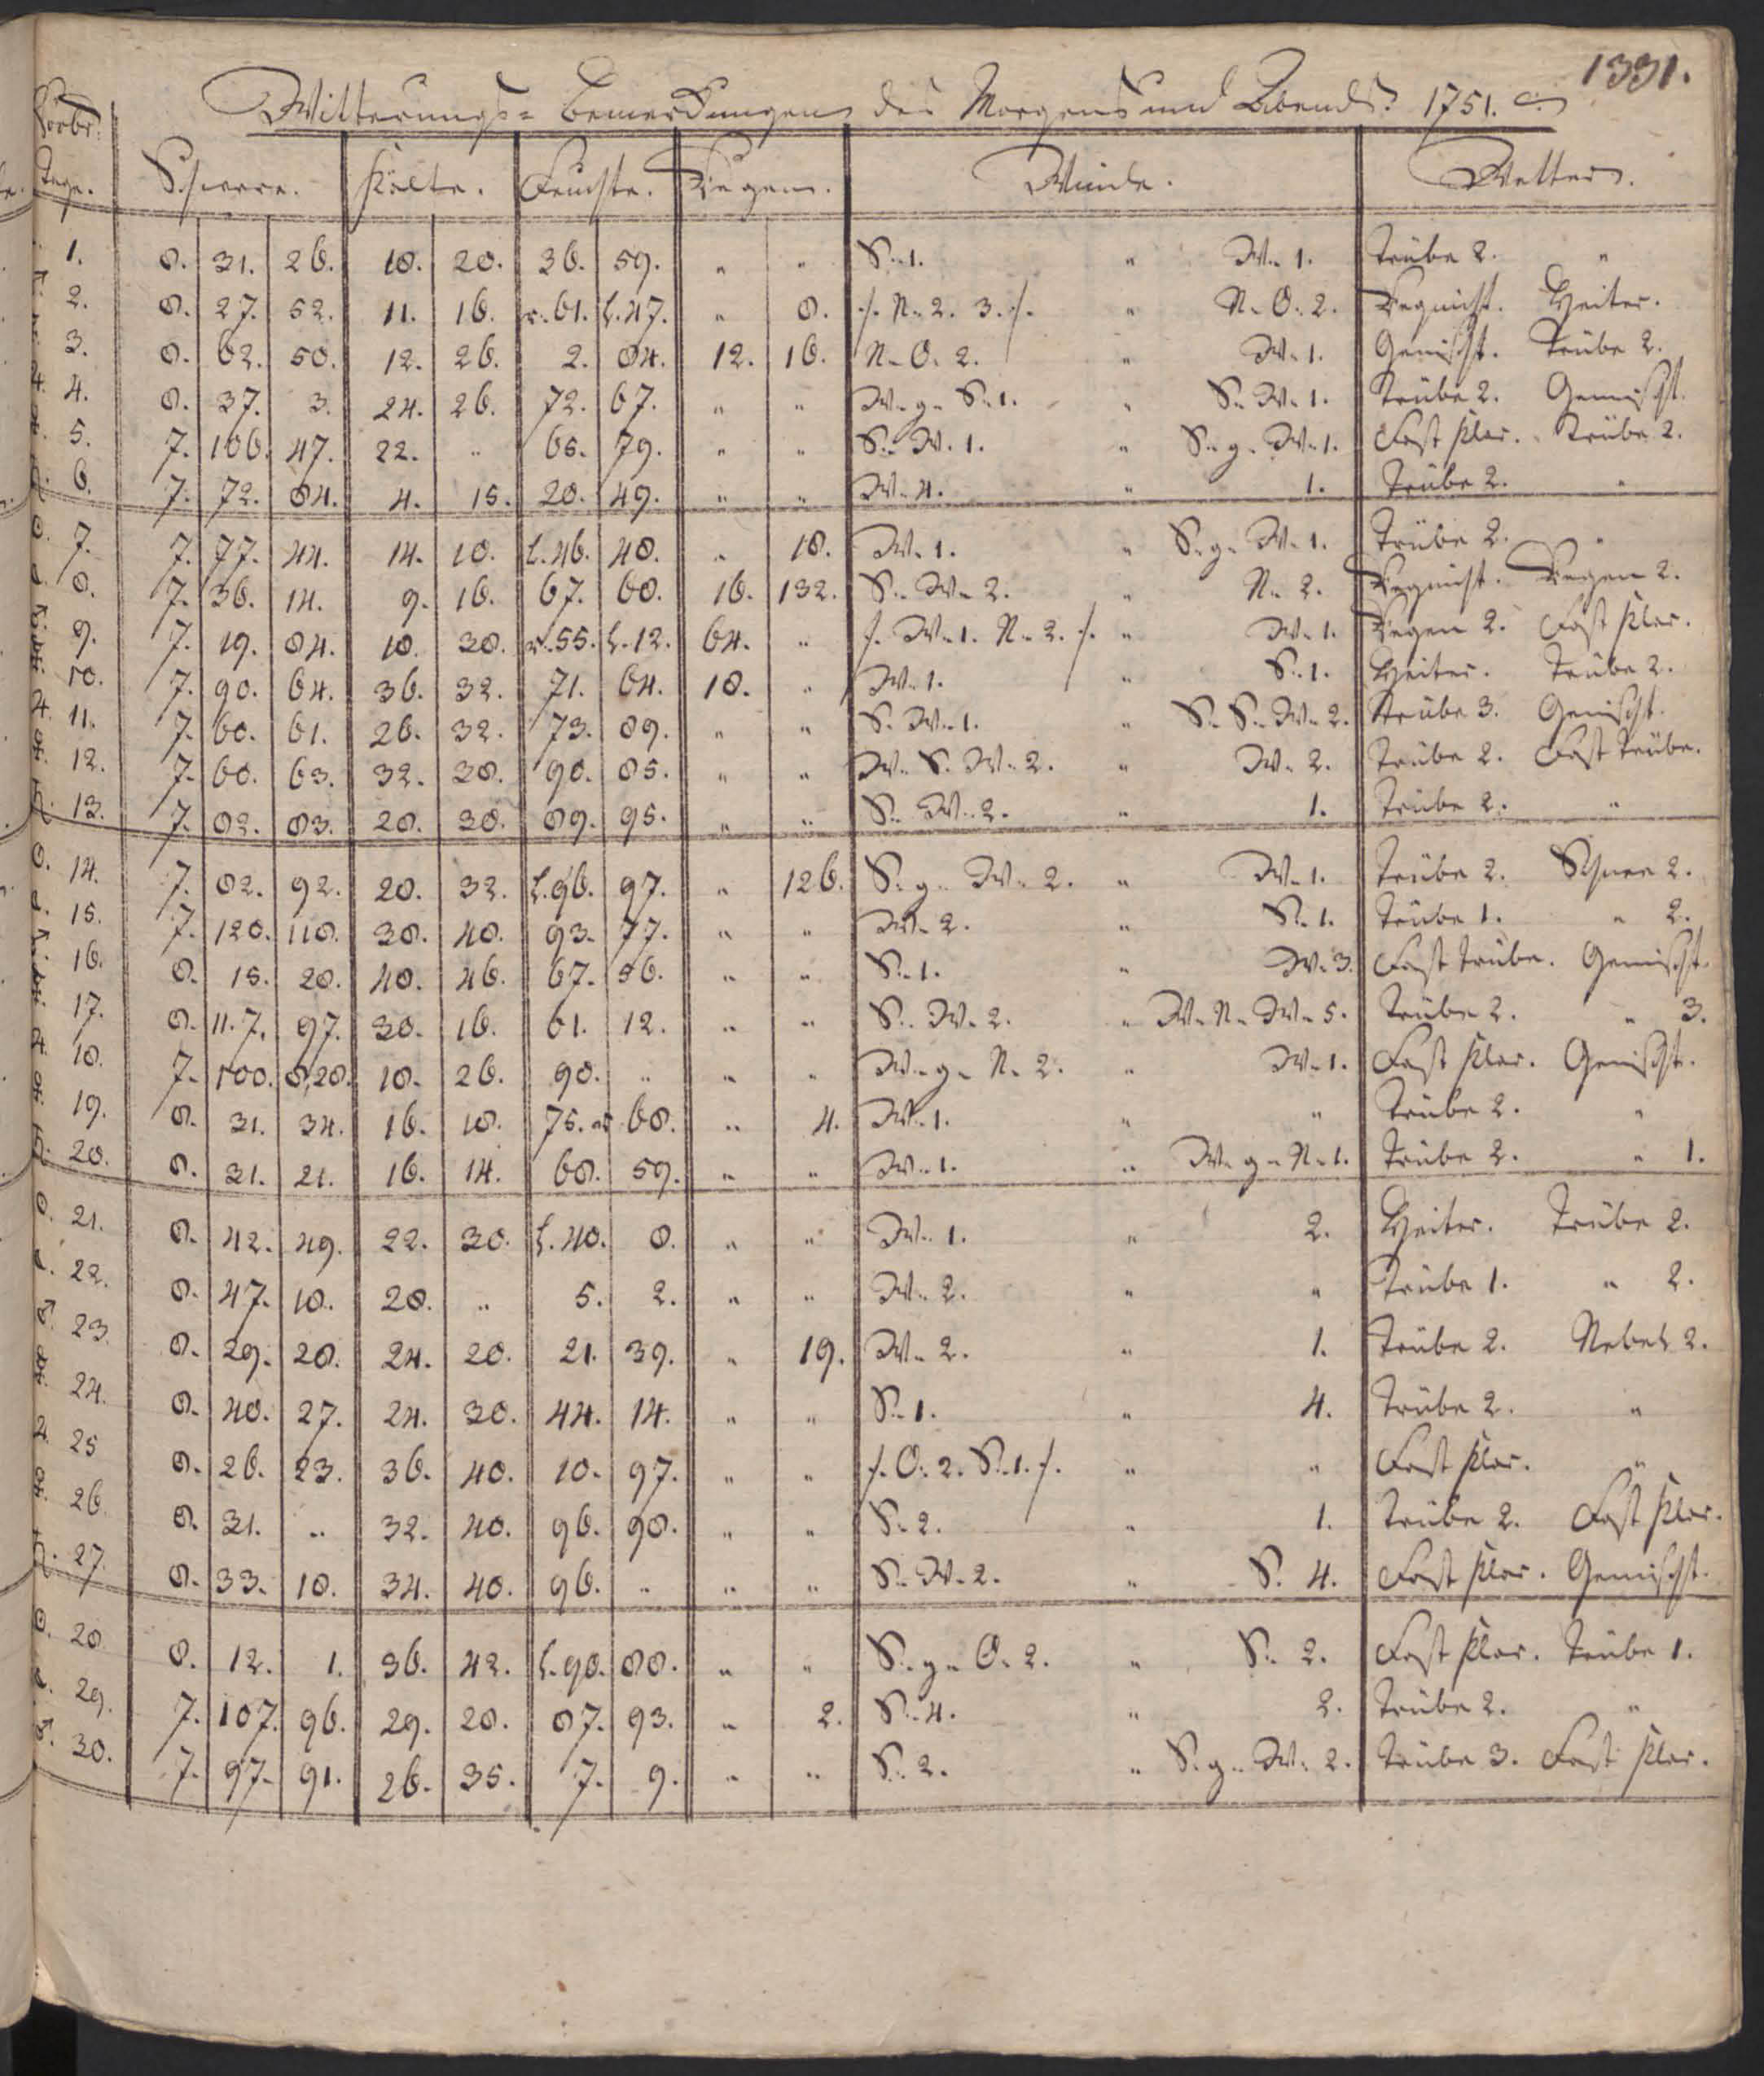 1331.
Witterungs= Bemerkungen des Morgens und Abends. 1751.
Novbr. Tage. Schwere. Kälte. Feuchte. Regen. Winde. Wetter.
1. 8. 31. 26. 18. 20. 36. 59. „ „ S. 1. „ W. 1. Trübe 2. „
2. 8. 27. 52. 11. 16. r. 61. l. 47. „ 8. /. N. 2. 3. /. „ N. O. 2. Regnicht. Heiter.
3. 8. 62. 50. 12. 26. 2. 84. 12. 16. N. O. 2. „ W. 1. Gemischt. Trübe 2.
4. 8. 37. 3. 24. 26. 72. 67. „ „ W. g. S. 1. „ S. W. 1. Trübe 2. Gemischt.
5. 7. 106. 47. 22. „ 65. 79. „ „ S. W. 1. „ S. g. W. 1. Fast klar. Trübe 2.
6. 7. 72. 84. 4. 15. 20. 49. „ „ W. 4. „ 1. Trübe 2. „
7. 7. 77. 44. 14. 10. l. 46. 48. „ 18. W. 1. „ S. g. W. 1. Trübe 2. „
8. 7. 36. 14. 9. 16. 67. 68. 16. 132. S. W. 2. „ N. 2. Regnicht. Regen 2.
9. 7. 19. 84. 18. 30. r. 55. l. 12. 64. „ /. W. 1. N. 2. /. „ W. 1. Regen 2. Fast klar.
10. 7. 90. 64. 36. 32. 71. 64. 18. „ W. 1. „ S. 1. Heiter. Trübe 2.
11. 7. 60. 61. 26. 32. 73. 89. „ „ S. W. 1. „ S. S. W. 2. Trübe 3. Gemischt.
12. 7. 60. 63. 32. 30. 90. 85. „ „ W. S. W. 2. „ W. 2. Trübe 2. Fast trübe.
13. 7. 82. 83. 28. 30. 89. 95. „ „ S. W. 2. „ 1. Trübe 2. „
14. 7. 82. 92. 28. 32. l. 96. 97. „ 126. S. g. W. 2. „ W. 1. Trübe 2. Schnee 2.
15. 7. 120. 118. 38. 40. 93. 77. „ „ W. 2. „ S. 1. Trübe 1. „ 2.
16. 8. 15. 20. 40. 46. 67. 56. „ „ S. 1. „ W. 3. Fast trübe. Gemischt.
17. 8. 11. 7. 97. 30. 16. 61. 12. „ „ S. W. 2. „ W. N. W. 5. Trübe 2. „ 3.
18. 7. 100. 8,20. 18. 26. 90. „ „ „ W. g. N. 2. „ W. 1. Fast klar. Gemischt.
19. 8. 31. 34. 16. 18. 75. 68. „ 4. W. 1. „ „ Trübe 2. „
20. 8. 31. 21. 16. 14. 68. 59. „ „ W. 1. „ W. g. N. 1. Trübe 2. „ 1.
21. 8. 42. 49. 22. 30. l. 40. 8. „ „ W. 1. „ 2. Heiter. Trübe 2.
22. 8. 47. 18. 28. „ 5. 2. „ „ W. 2. „ „ Trübe 1. „ 2.
23. 8. 29. 20. 24. 20. 21. 39. „ 19. W. 2. „ 1. Trübe 2. Nebel 2.
24. 8. 40. 27. 24. 30. 44. 14. „ „ S. 1. „ 4. Trübe 2. „
25 8. 26. 23. 36. 40. 10. 97. „ „ /. O. 2. S. 1. /. „ „ Fast klar. „
26. 8. 31. „ 32. 40. 96. 98. „ „ S. 2. „ 1. Trübe 2. Fast klar.
27. 8. 33. 18. 34. 40. 96. „ „ „ S. W. 2. „ S. 4. Fast klar. Gemischt.
28 8. 12. 1. 36. 42. l. 90. 88. „ „ S. g. O. 2. „ S. 2. Fast klar. Trübe 1.
29. 7. 107. 96. 29. 28. 87. 93. „ 2. S. 4. „ 2. Trübe 2. „
30. 7. 97. 91. 26. 35. 7. 9. „ „ S. 2. „ S. g. W. 2. Trübe 3. Fast klar.